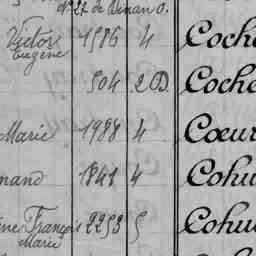 de Dinan
Victor 1586 4 Coche
Eugène
504 2 D. Coche
Marie 1988 4 Cœur
nand 1841 4 Cohu
ne François 2253 5 Cohu
Marie